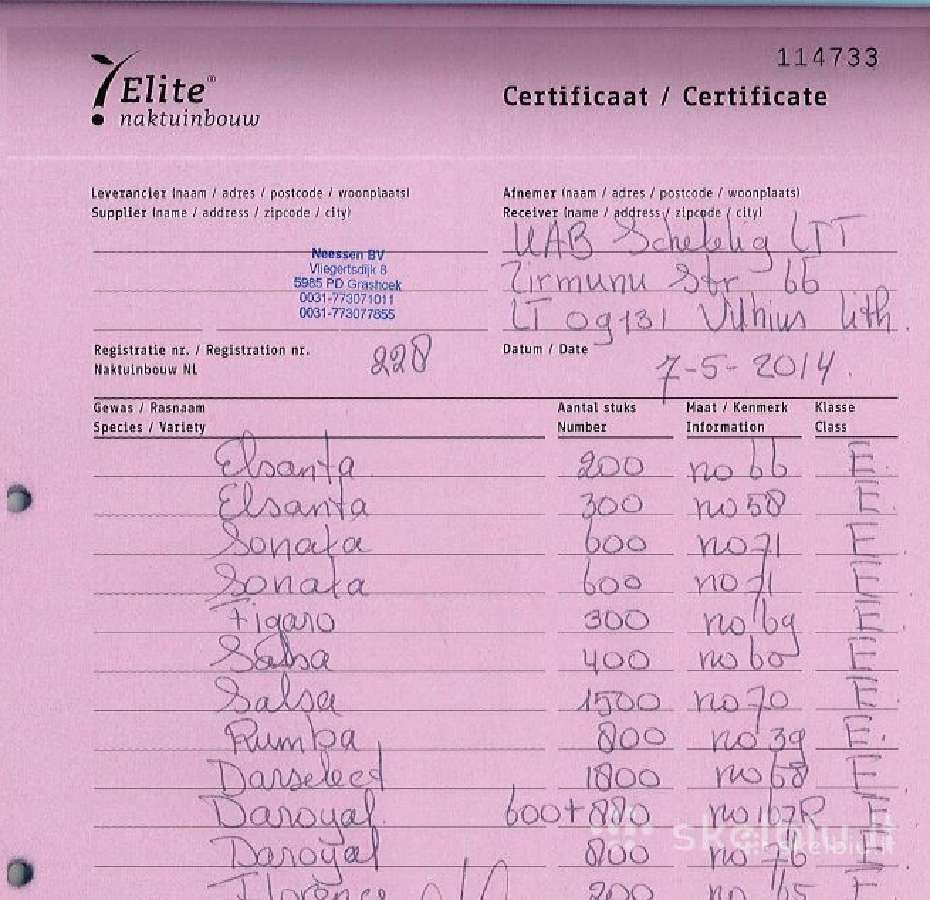 114733
Elite®
naktuinbouw
Certificaat / Certificate
Leverancier (naam / adres / postcode / woonplaats)
Supplier (name / address / zipcode / city)
Neessen BV
Vliegertsdijk 8
5985 PD Grashoek
0031-773071011
0031-773077855
Afnemer (naam / adres / postcode / woonplaats)
Receiver (name / address / zipcode / city)
UAB Schetelig LIT
Zirmunu Str 66
LT 09131 Vilnius Lith.
Registratie nr. / Registration nr. 228
Naktuinbouw NL
Datum / Date 7-5-2014.
Gewas / Rasnaam Aantal stuks Maat / Kenmerk Klasse
Species / Variety Number Information Class
Elsanta 200 no 66 E.
Elsanta 300 no 58 E
Sonata 600 no 71 E
Sonata 600 no 71 E
Figaro 300 no 69 E
Salsa 400 no 60 E
Salsa 1500 no 70 E.
Rumba 800 no 39 E.
Darselect 1800 no 68 E
Daroyal 600+880 E
Daroyal 800 no 76 E
Florence 200 no 65 E
skelbiu.lt